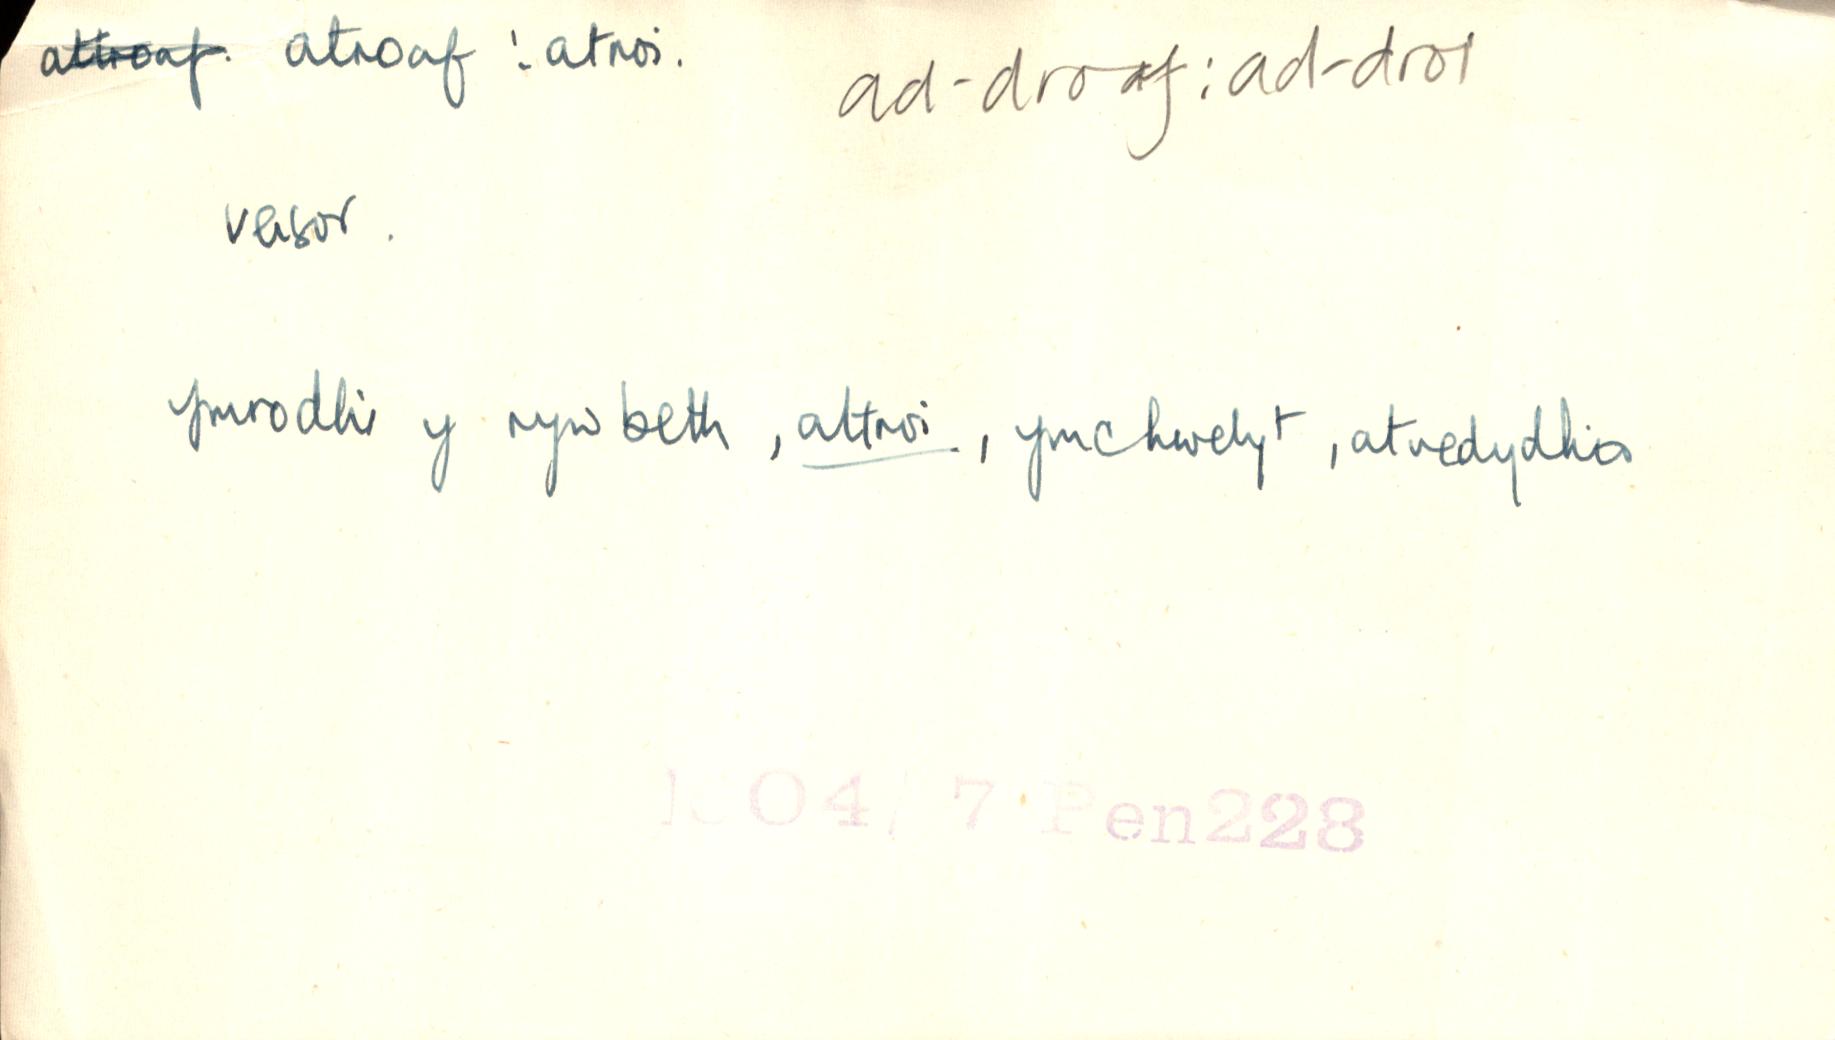 attroaf. atroaf : atroi. ad-droaf : ad-droi
versor.
ymrodhi y ryw beth, attroi, ymchwelyt, atvedydhio
1604/7 Pen228